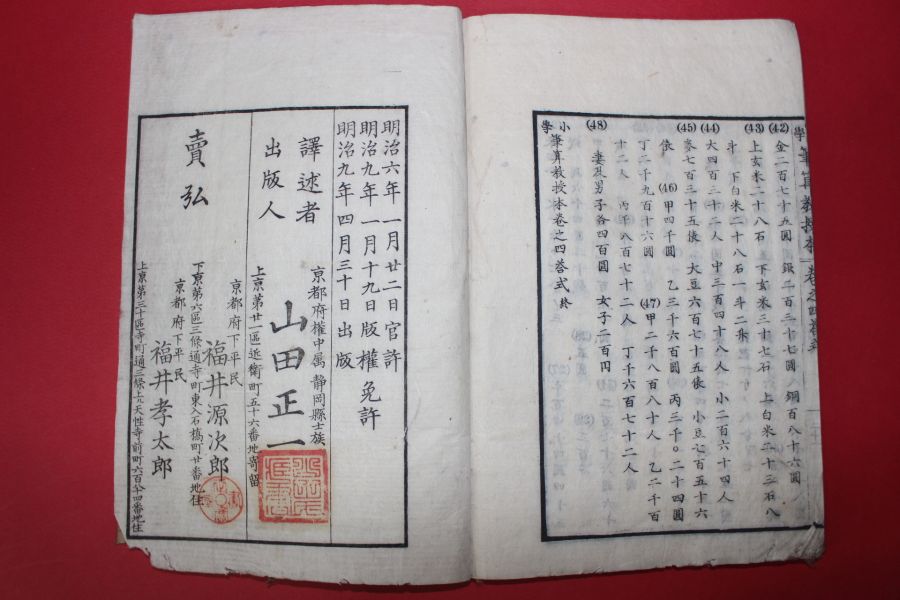 學筆算教授本卷之四答式
(42) 金二百七十五圓 銀二百三十七圓 銅百八十六圓
(43) 上玄米二十八石 下玄米三十七石 上白米二十三石八
斗 下白米二十八石一斗二升
(44) 大四百三十二人 中三百四十八人 小二百六十四人
(45) 麥七百三十五俵 大豆六百七十五俵 小豆七百五十六
俵 (46) 甲四千圓 乙三千六百圓 丙三千〇二十四圓
丁二千九百十六圓 (47) 甲二千八百八十人 乙二千百
六十二人 丙千八百七十二人 丁千六百七十二人
(48) 妻及男子各四百圓 女子二百円
小學筆算教授本卷之四答式 終
明治六年一月廿二日官許
明治九年一月十九日版權免許
明治九年四月三十日出版
譯述者 京都府權中属 靜岡縣士族
出版人 山田正一
上京第廿一區近衛町五十六番地寄留
京都府下平民
賣弘 福井源次郎
下京第六區三條通寺町東入石橋町廿番地住
京都府下平民
福井孝太郎
上京第三十區寺町通三條上ル天性寺前町六百廿四番地住